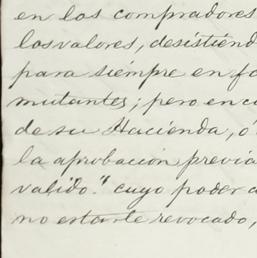 en los compradores
los valores, desistiend
para siempre en fa
mutantes; pero en cu
de su Hacienda, ó
la aprobacion previa
valido." cuyo poder a
no estarle revocado,